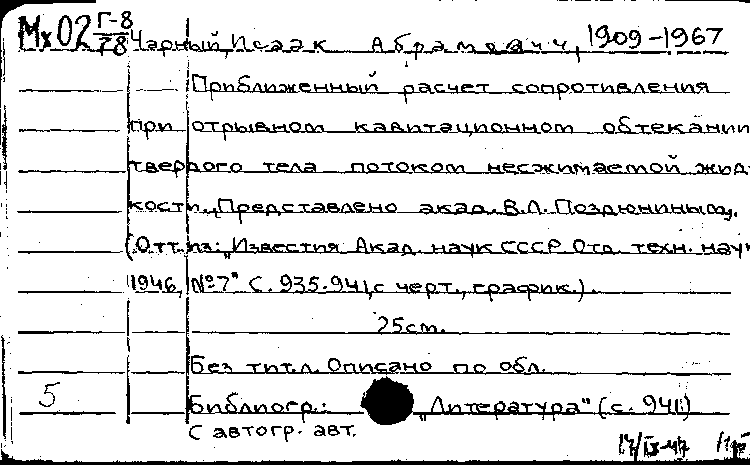 Мх02 Г-8/78 Чарный, Исаак Абрамович, 1909-1967
Приближенный расчет сопротивления
при отрывном кавитационном обтекании
твердого тела потоком несжимаемой жид-
кости. Представлено акад. В.Л. Поздюниным.
(Отт. из: "Известия Акад. наук СССР Отд. техн. наук
1946, №7" С. 935-941, с черт., график.).
25cm.
Без тит. л. Описано по обл.
5 Библиогр.: "Литература" (с. 941)
С автогр. авт.